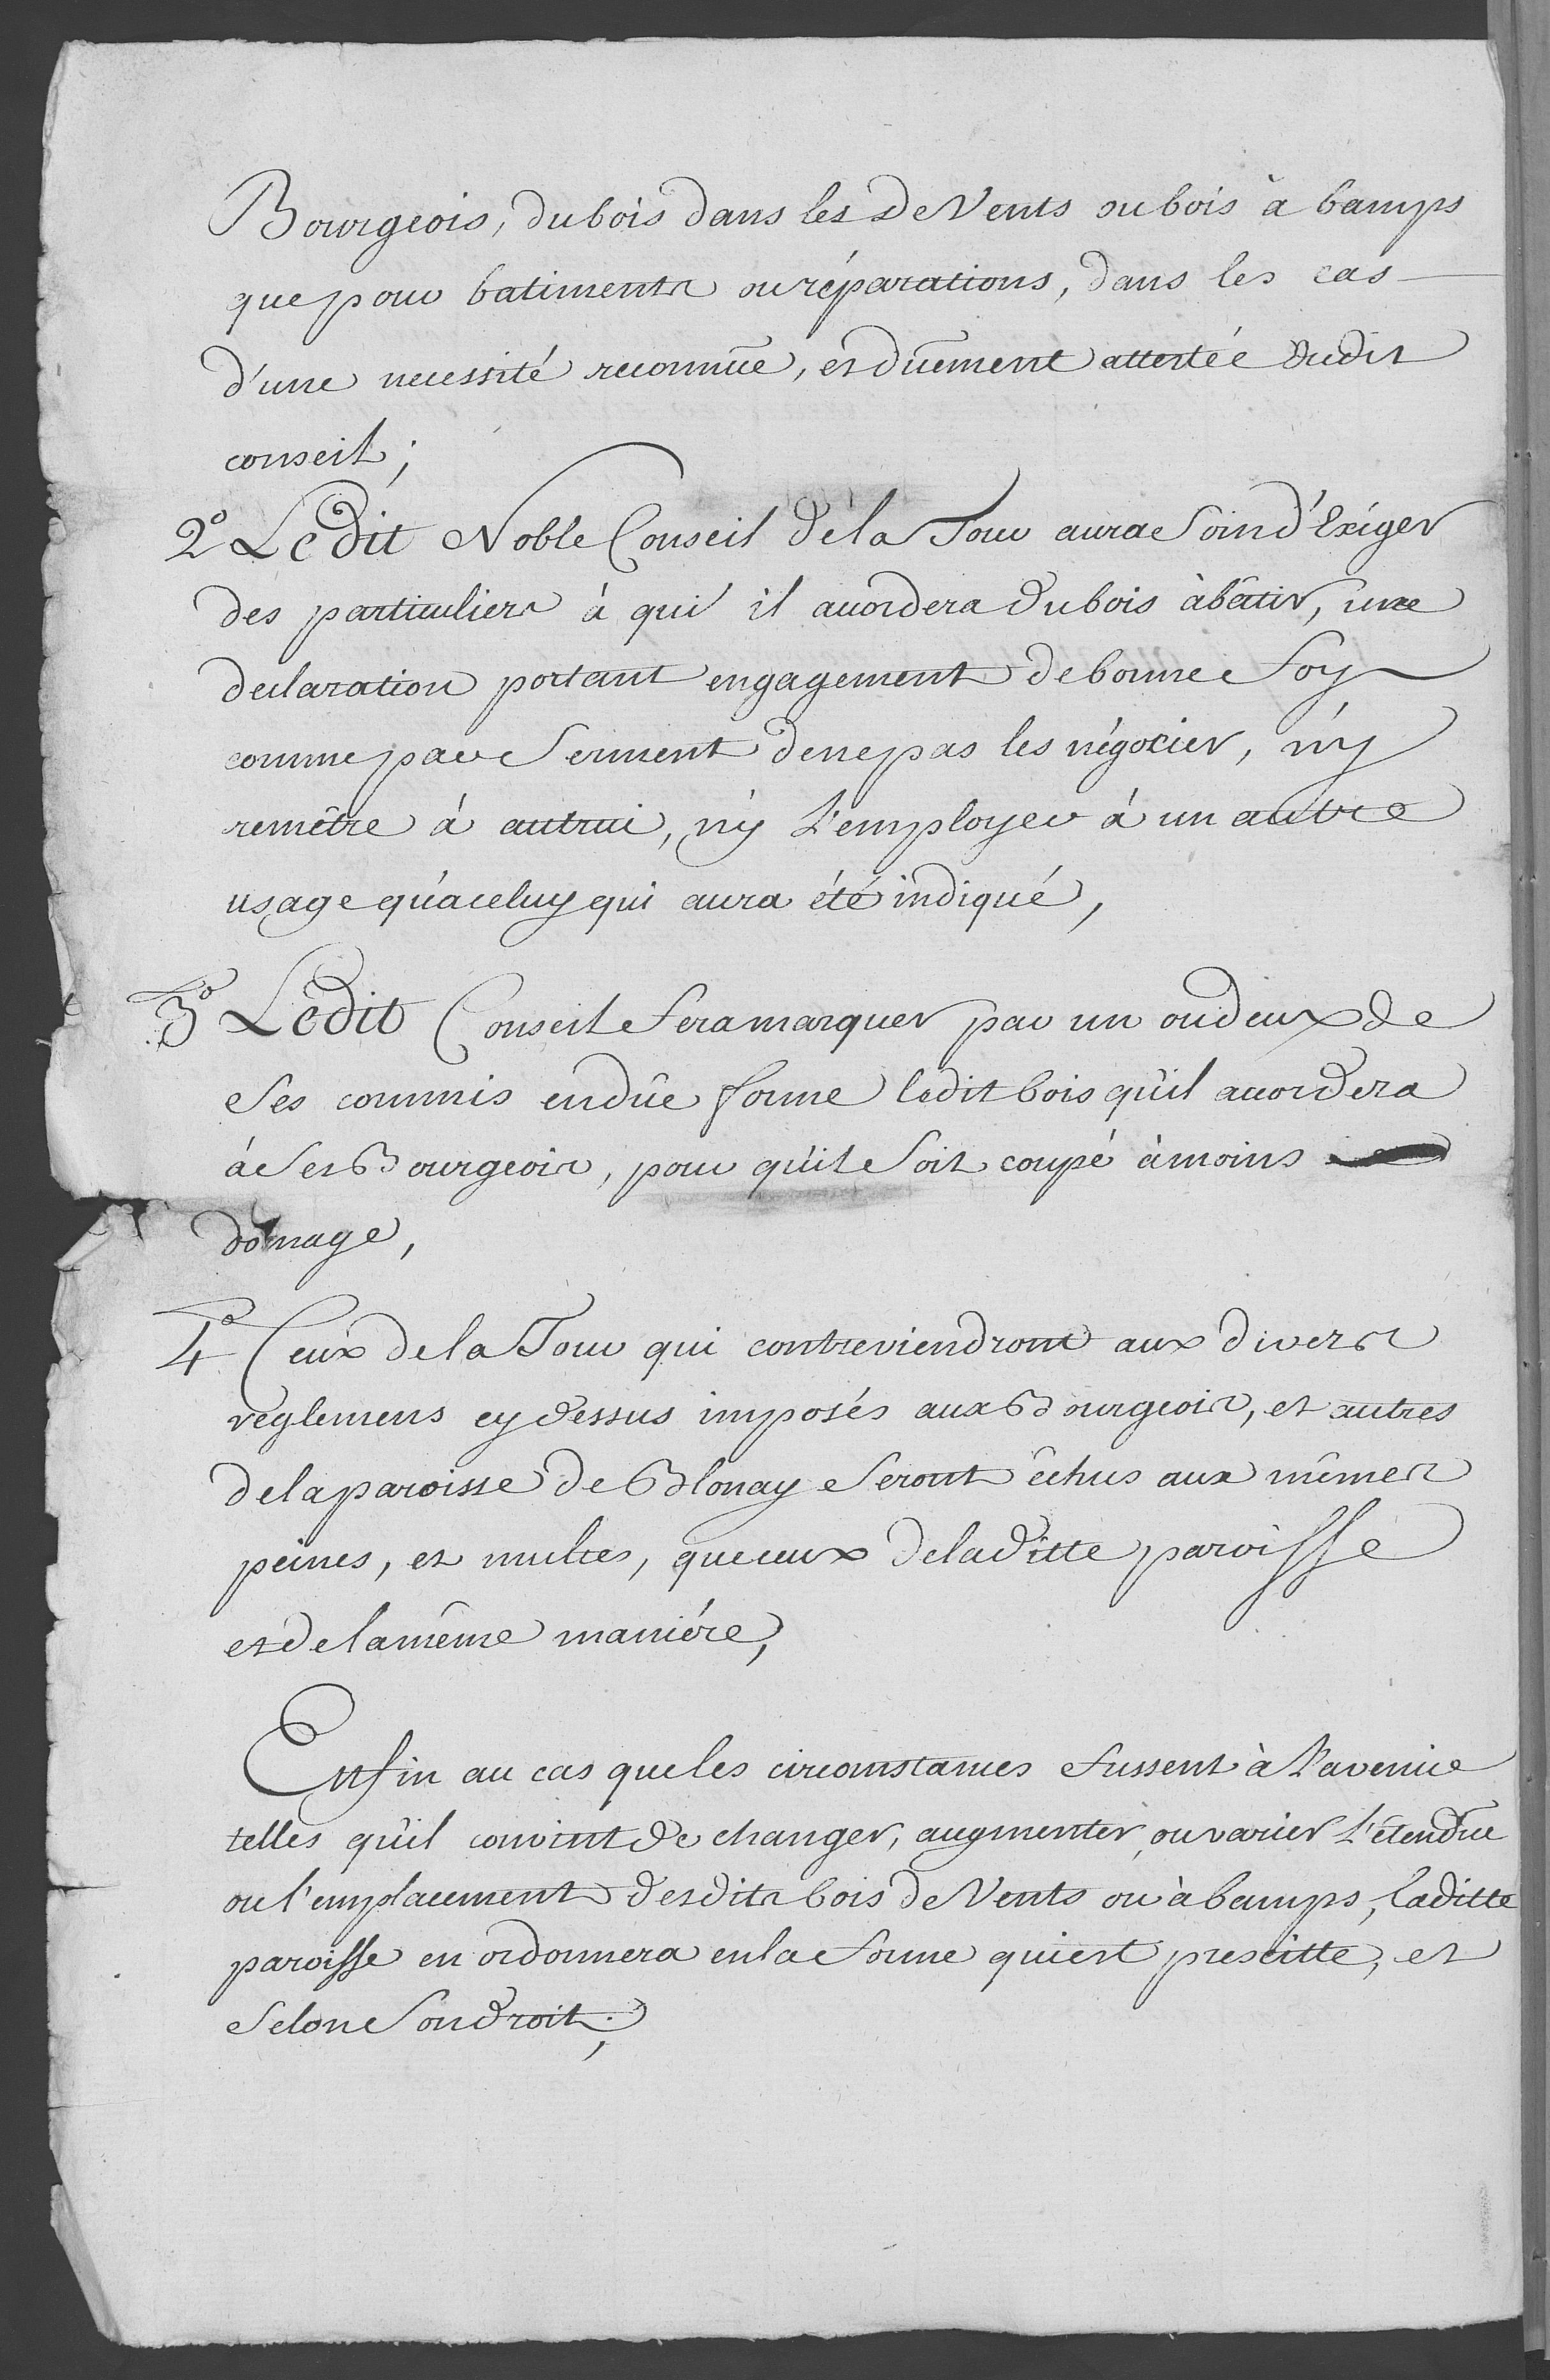 Bourgeois, du bois dans les deVents ou bois à bamps
que pour batiments ou réparations, dans les cas
d'une necessité reconnüe, et düement attestée dudit
conseil;
2° Ledit Noble Conseil de la Tour aura Soin d'Exiger
des particuliers à qui il acordera du bois à bâtir, une
declaration portant engagement de bonne foy
comme par Serment de ne pas les négocier, n'y
remêtre à autrui, n'y L'employer à un autre
usage qu'a celuy qui aura été indiqué,
3° Ledit Conseil fera marquer par un ou deux de
Ses commis en dûe forme ledit bois qu'il acordera
à Ses Bourgeois, pour qu'il Soit coupé à moins
domage,
4° Ceux de la Tour qui contreviendront aux divers
reglemens cy dessus imposés aux Bourgeois, et autres
de la paroisse de Blonay Seront êchus aux mêmes
peines, et multes, que ceux de la ditte paroisse
et de la même maniére,
Enfin au cas que les circonstances fussent à L'avenir
telles qu'il convint de changer, augmenter, ou varier L'étendue
ou l'emplacement desdits bois de Vents ou à bamps, la ditte
paroisse en ordonnera en la forme qui est prescitte, et
Selon Son droit;